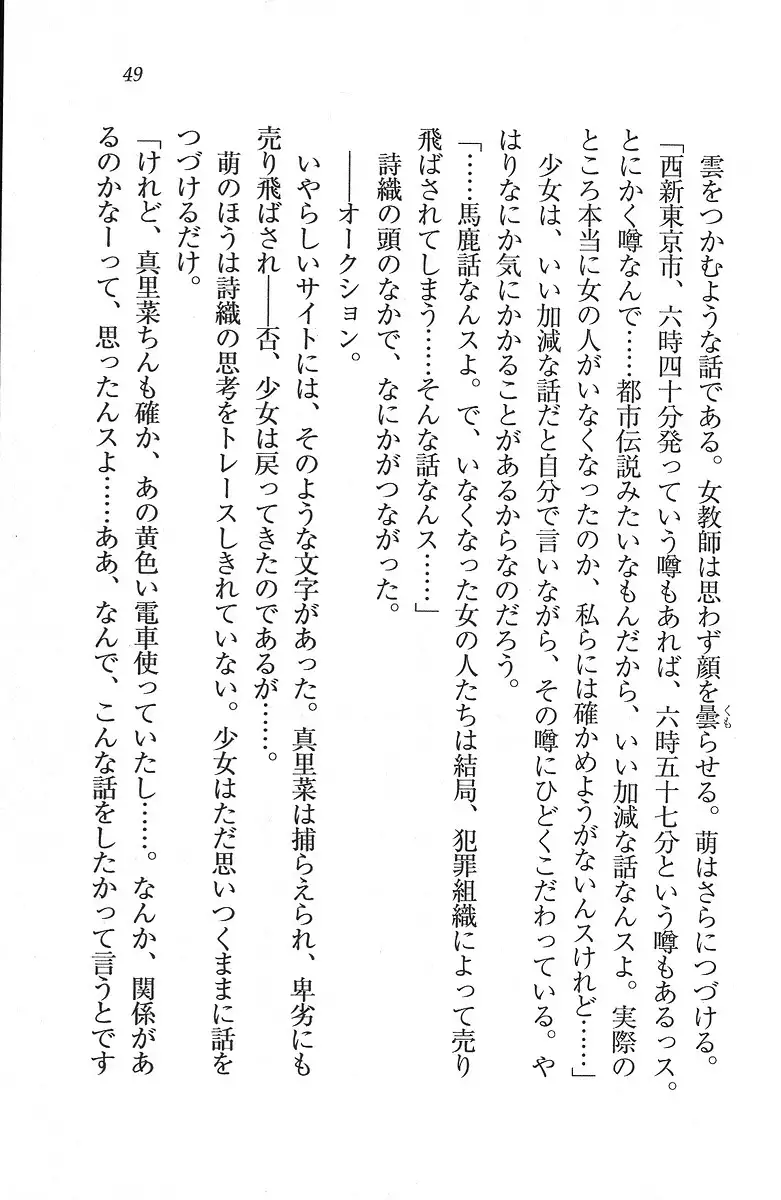 雲をつかむような話である。女教師は思わず顔を曇らせる。萌はさらにつづける。
くも
「西新東京市、六時四十分発っていう噂もあれば、六時五十七分という噂もあるっス。
とにかく噂なんで……都市伝説みたいなもんだから、いい加減な話なんスよ。実際の
ところ本当に女の人がいなくなったのか、私らには確かめようがないんスけれど……」
少女は、いい加減な話だと自分で言いながら、その噂にひどくこだわっている。や
はりなにか気にかかることがあるからなのだろう。
「……馬鹿話なんスよ。で、いなくなった女の人たちは結局、犯罪組織によって売り
飛ばされてしまう……そんな話なんス……」
詩織の頭のなかで、なにかがつながった。
――オークション。
いやらしいサイトには、そのような文字があった。真里菜は捕らえられ、卑劣にも
売り飛ばされ――否、少女は戻ってきたのであるが……。
萌のほうは詩織の思考をトレースしきれていない。少女はただ思いつくままに話を
つづけるだけ。
「けれど、真里菜ちんも確か、あの黄色い電車使っていたし……。なんか、関係があ
るのかなーって、思ったんスよ……ああ、なんで、こんな話をしたかって言うとです
49